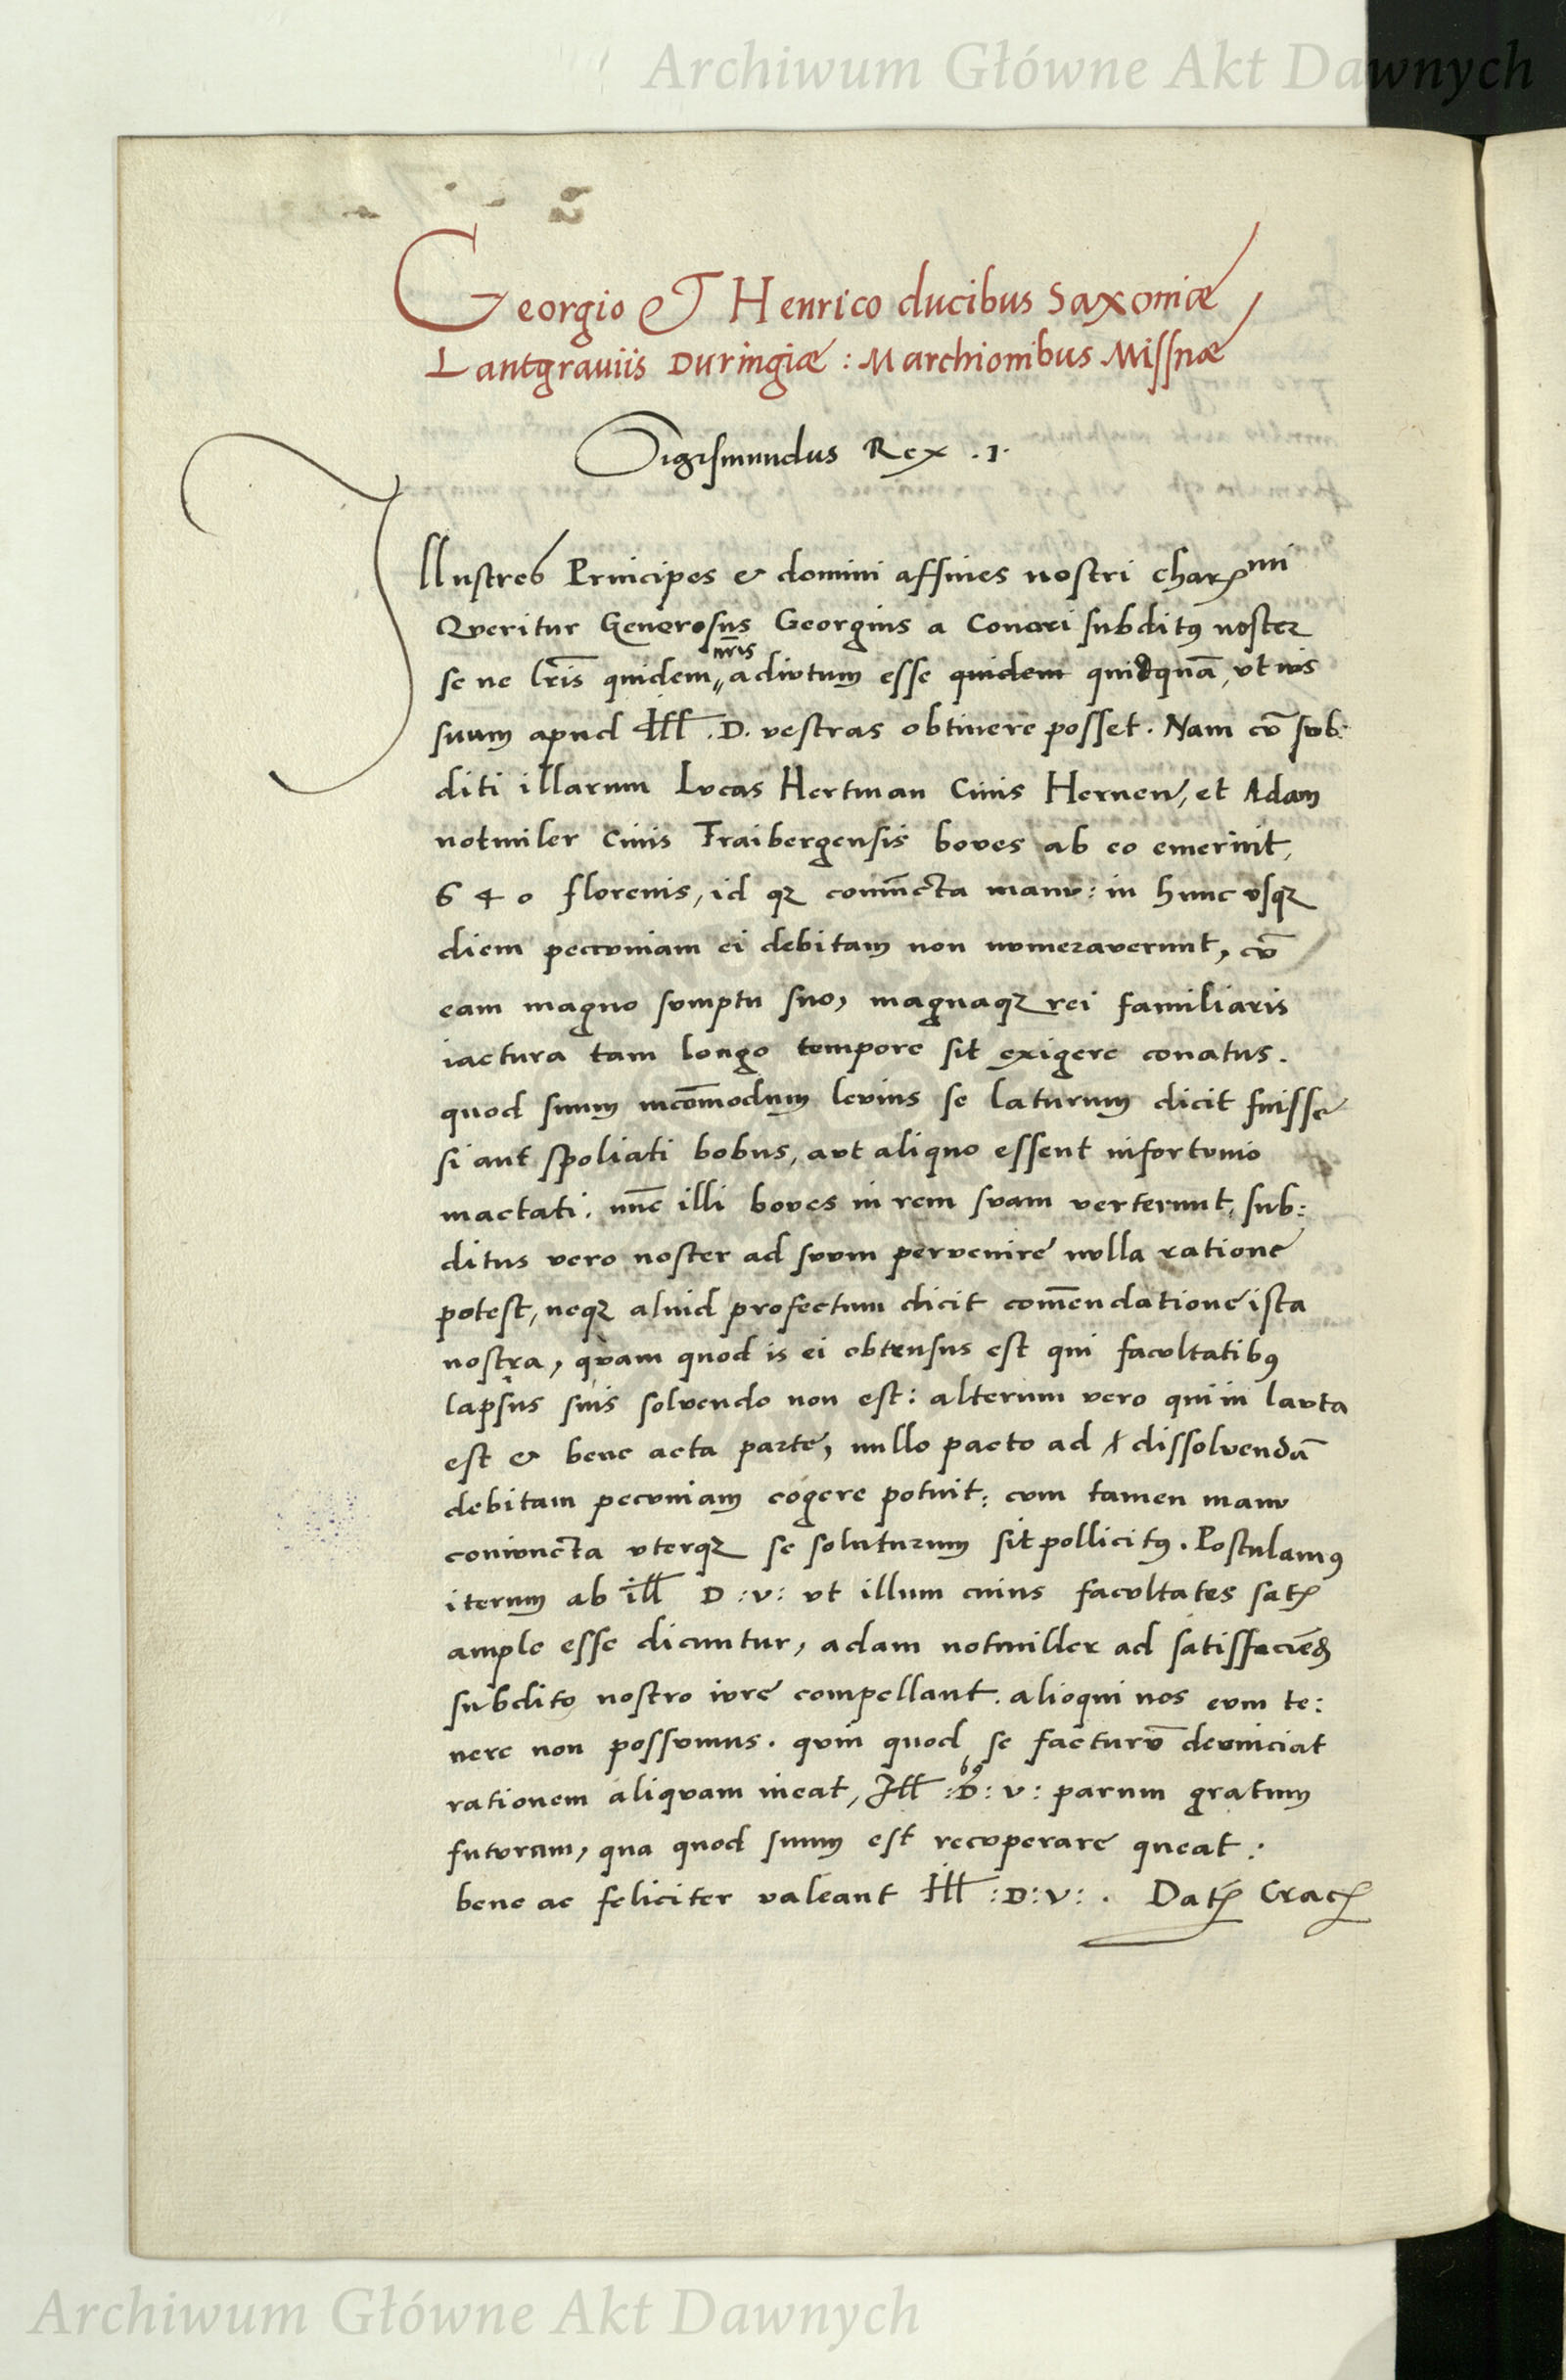 Archiwum Główne Akt Dawnych
Georgio & Henrico ducibus Saxoniæ
Lantgraviis Duringiæ : Marchionibus Missnæ
Sigismundus Rex .1.
Illustres Principes & domini affines nostri chariss mi
Queritur Generosus Georgius a Conari subditus noster
nr̄is
se ne lr̄is quidem adiutum esse quidem quidquā, ut ius
suum apud Ill. D. vestras obtinere posset. Nam cū sub:
diti illarum Lucas Hertman Civis Hernen, et Adam
notmiler civis Fraibergensis boves ab eo emerint,
640 florenis, id q; coniūcta manu: in hunc usq;
diem pecuniam ei debitam non numeraverunt, cū
eam magno sumptu suo, magnaq; rei familiaris
iactura tam longo tempore sit exigere conatus.
quod suum incōmodum levius se laturum dicit fuisse
si aut spoliati bobus, aut aliquo essent infortunio
mactati. nūc illi boves in rem suam verterunt, sub:
ditus vero noster ad suum pervenire nulla ratione
potest, neq; aliud profectum dicit com̄endatione ista
nostra, quam quod is ei obtensus est qui facultatibus
lapsus suis solvendo non est: alterum vero qui in lauta
est & bene acta parte, nullo pacto ad dissolvendā
debitam pecuniam cogere potuit: cum tamen manu
coniuncta uterq; se soluturum sit pollicitus. Postulamus
iterum ab ill D : v : ut illum cuius facultates satis
ample esse dicuntur, adam notmiller ad satisfaciēd
subdito nostro iure compellant. alioqui nos eum te:
nere non possumus. quin quod se facturū devinciat
rationem aliquam ineat, Ill : D : v : parum gratum
futuram, qua quod suum est recuperare queat :
bene ac feliciter valeant Ill : D : V : . Dat Crac
Archiwum Główne Akt Dawnych